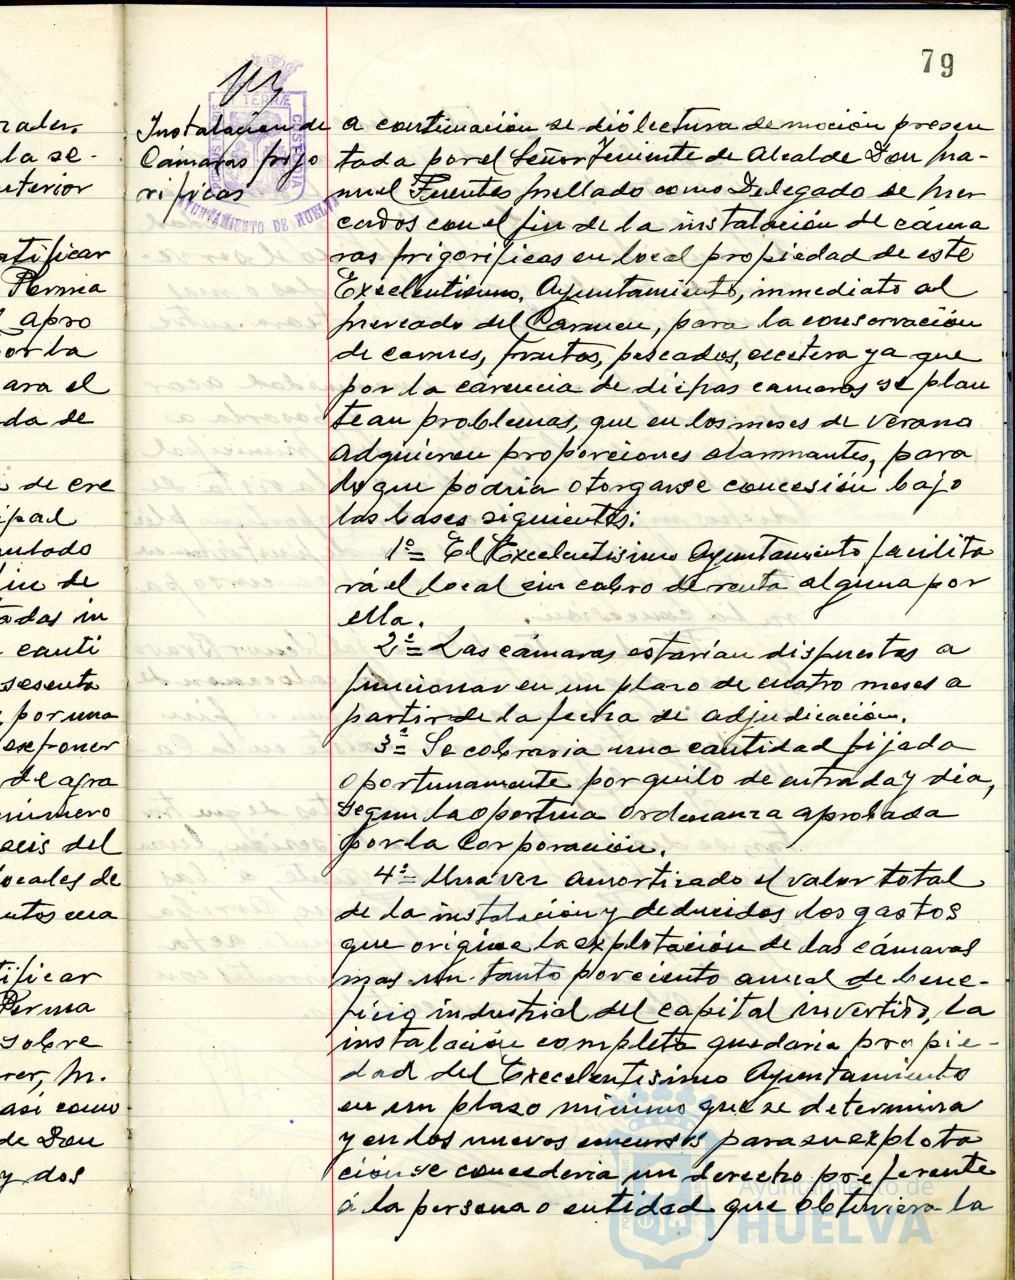 79
Instalación de
Cámaras frijo
rificas
PORTUS MARIS ET TERRÆ CUSTODIA
AYUNTAMIENTO DE HUELVA
a continuación se dió lectura de moción presen
tada por el Señor Teniente de Alcalde Don Ma-
nuel Fuentes Mellado como Delegado de Mer
cados con el fin de la instalación de cáma
ras frigorificas en local propiedad de este
Excelentisimo, Ayuntamiento, inmediato al
Mercado del Carmen, para la conservación
de carnes, frutas, pescados, eccetera ya que
por la carencia de dichas camaras se plan
tean problemas, que en los meses de verano
adquieren proporciones alarmantes, para
lo que podria otorgarse concesión bajo
las bases siguientes:
1º= El Excelentisimo Ayuntamiento facilita
rá el local sin cobro de renta alguna por
ella.
2º= Las cámaras estarían dispuestas a
funcionar en un plazo de cuatro meses a
partir de la fecha de adjudicación.
3º= Se cobraria una cantidad fijada
oportunamente por quilo de entrada y dia,
segun la oportuna ordenanza aprobada
por la Corporación.
4º= Una vez amortizado el valor total
de la instalación y deducidos los gastos
que origine la explotación de las cámaras
mas un tanto por ciento anual de bene-
ficio industrial del capital invertido, la
instalación completa quedaria propie-
dad del Excelentisimo Ayuntamiento
en un plazo minimo que se determina
y en los nuevos concursos para su explota
ción se concederia un derecho preferente
á la persona o entidad que obtuviera la
Ayuntamiento de
HUELVA
rales,
la se-
nterior
atificar
Perma
apro
or la
ara el
da de
de cre
ipal
de
tadas in
canti
sesenta
por una
exponer
de agra
número
seis del
locales de
ificar
Perma
sobre
rer, M.
asi como
de Don
y dos